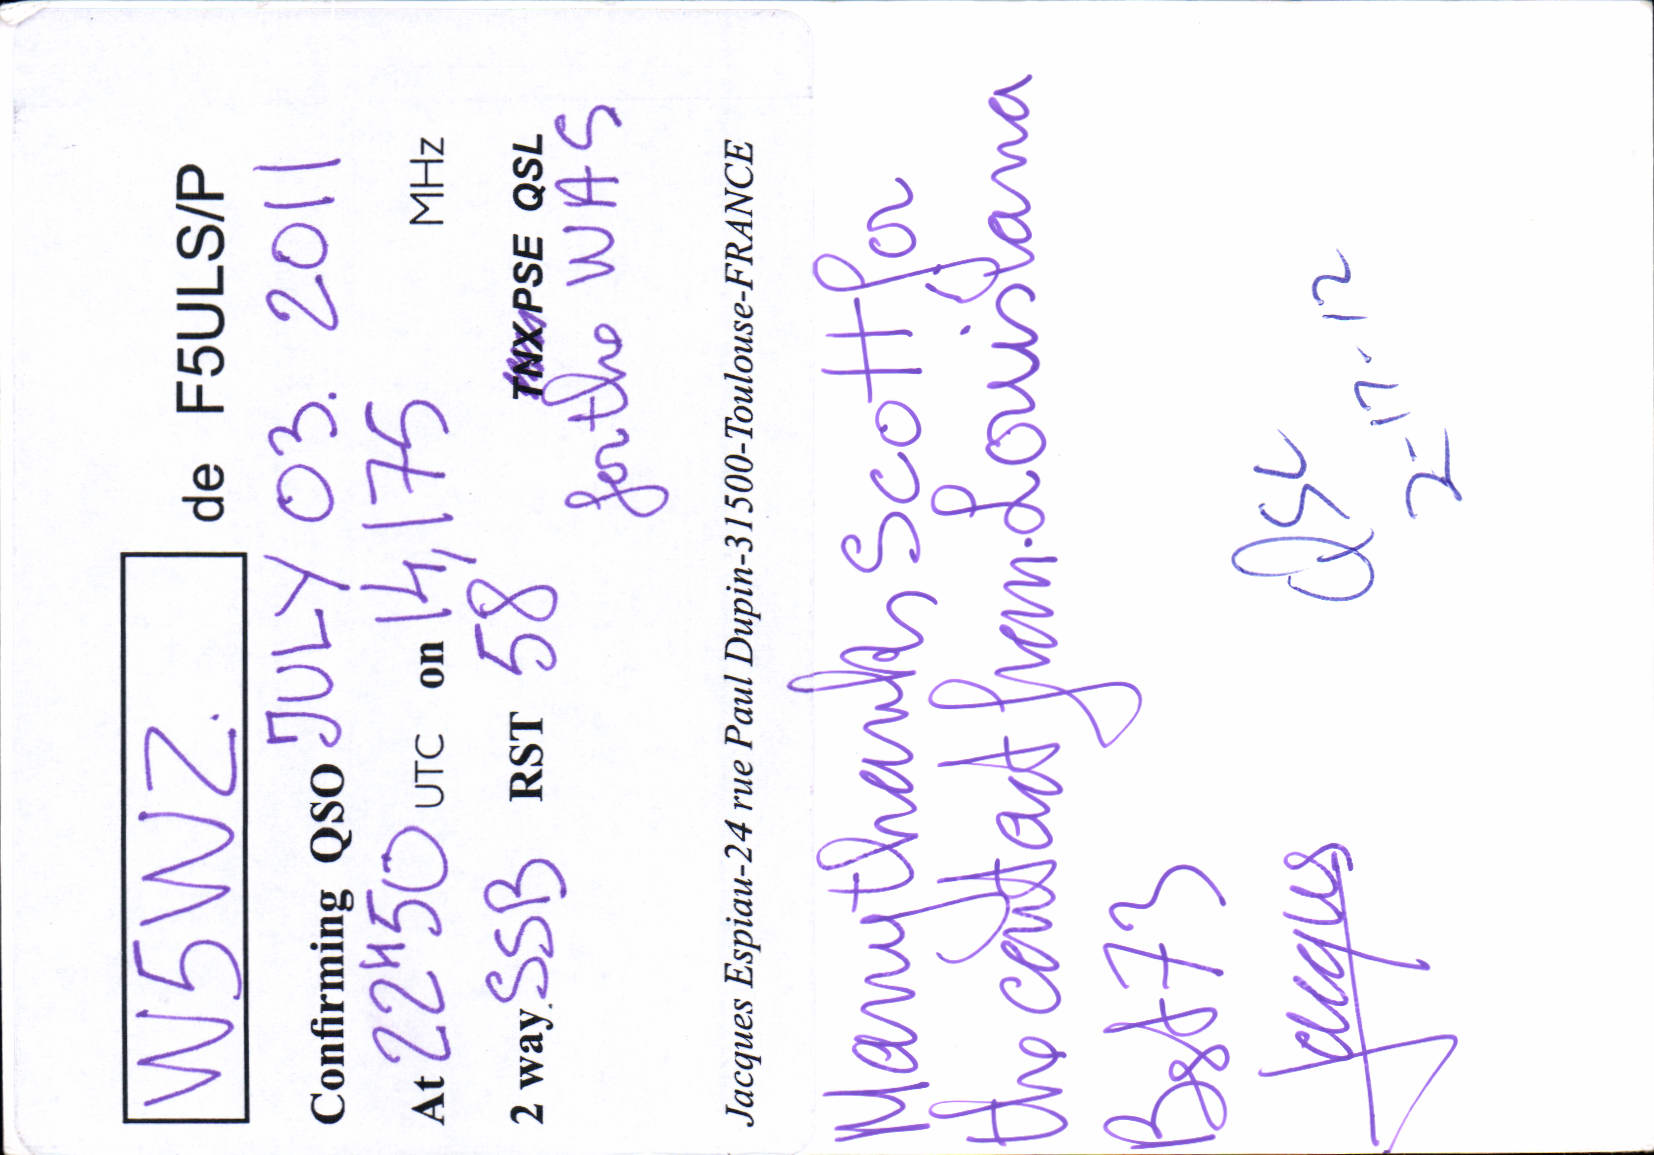 W5WZ. de F5ULS/P
Confirming QSO JULY 03. 2011
At 22H50 UTC on 14,175 MHz
2 way SSB RST 58 TNX PSE QSL
for the WAS
Jacques Espiau-24 rue Paul Dupin-31500-Toulouse-FRANCE
Many thanks Scott for
the contact from Louisiana
Bst 73
Jacques
QSL
2-17-12